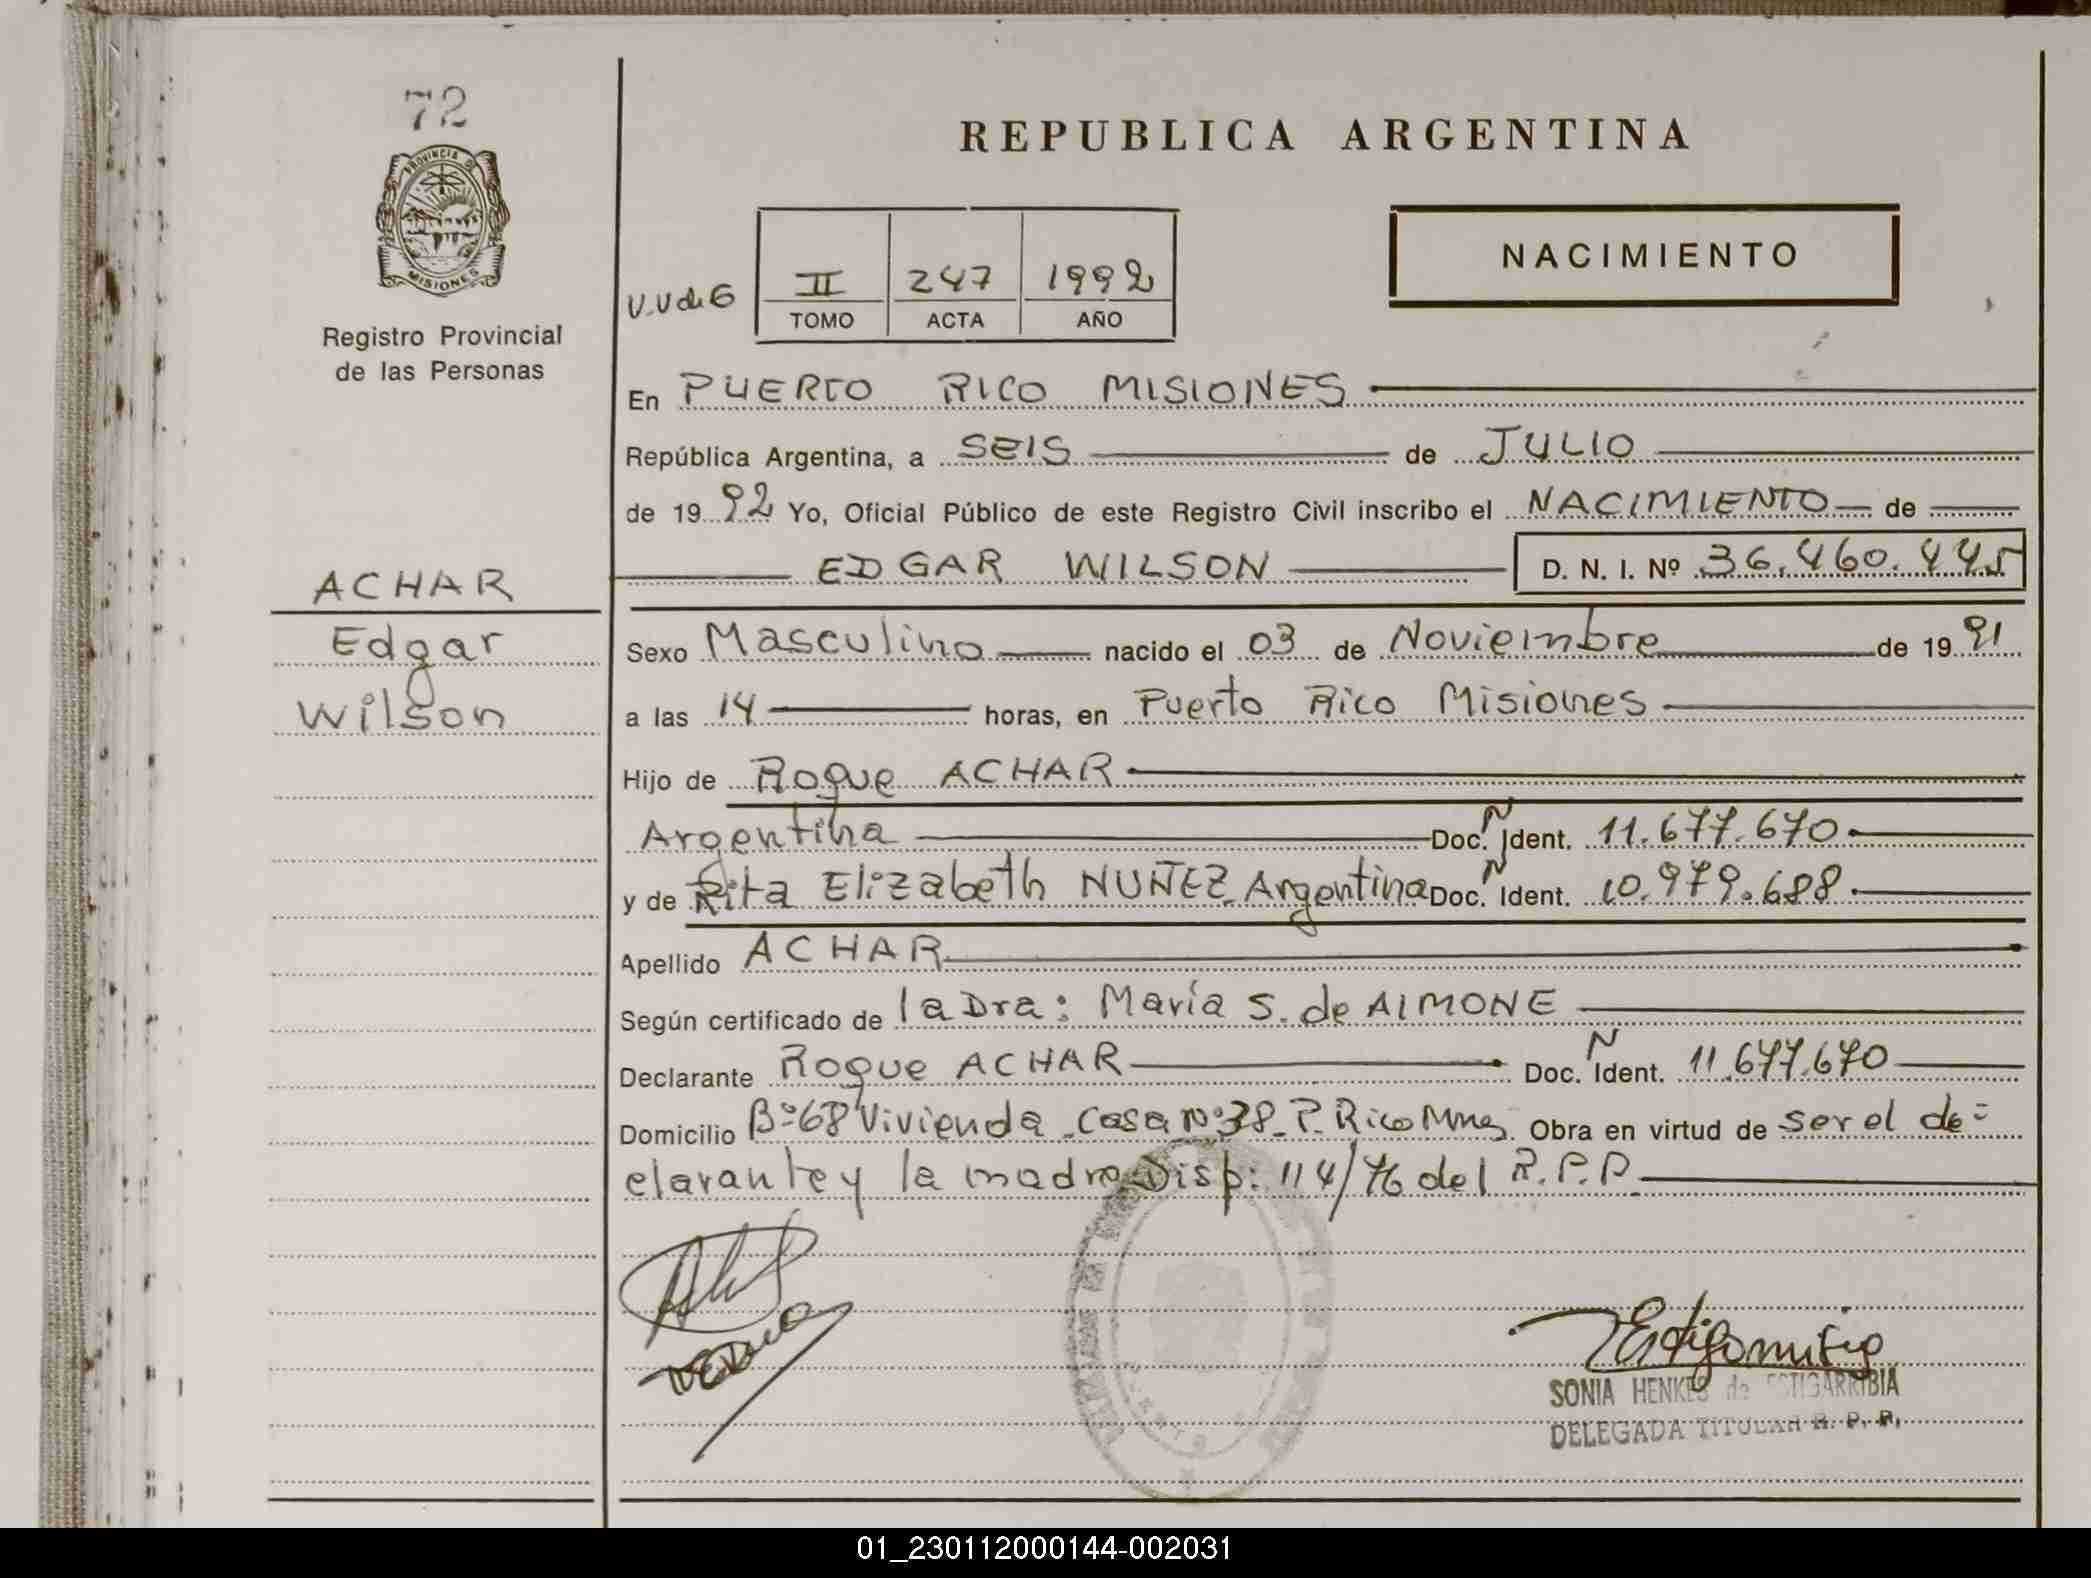 72
PROVINCIA DE
MISIONES
Registro Provincial
de las Personas
REPUBLICA ARGENTINA
NACIMIENTO
V.V de G
II 247 1992
TOMO ACTA AÑO
En PUERTO RICO MISIONES
República Argentina, a SEIS de JULIO
de 19 92 Yo, Oficial Público de este Registro Civil inscribo el NACIMIENTO de
EDGAR WILSON D. N. I. Nº 36.460.445
ACHAR
Edgar
Wilson
Sexo Masculino nacido el 03 de Noviembre de 19 91
a las 14 horas, en Puerto Rico Misiones
Hijo de Roque ACHAR
Argentina Doc. N Ident. 11.677.670
y de Rita Elizabeth NUÑEZ Argentina Doc. N Ident. 10.979.688
Apellido ACHAR
Según certificado de la Dra: María S. de AIMONE
Declarante Roque ACHAR Doc. N Ident. 11.677.670
Domicilio Bº 68 Vivienda Casa Nº 38 P. Rico Mnes Obra en virtud de ser el de-
clarante y la madre Disp: 114/76 del R.P.P.
SONIA HENKES de ESTIGARRIBIA
DELEGADA TITULAR R. P. P.
01_230112000144-002031